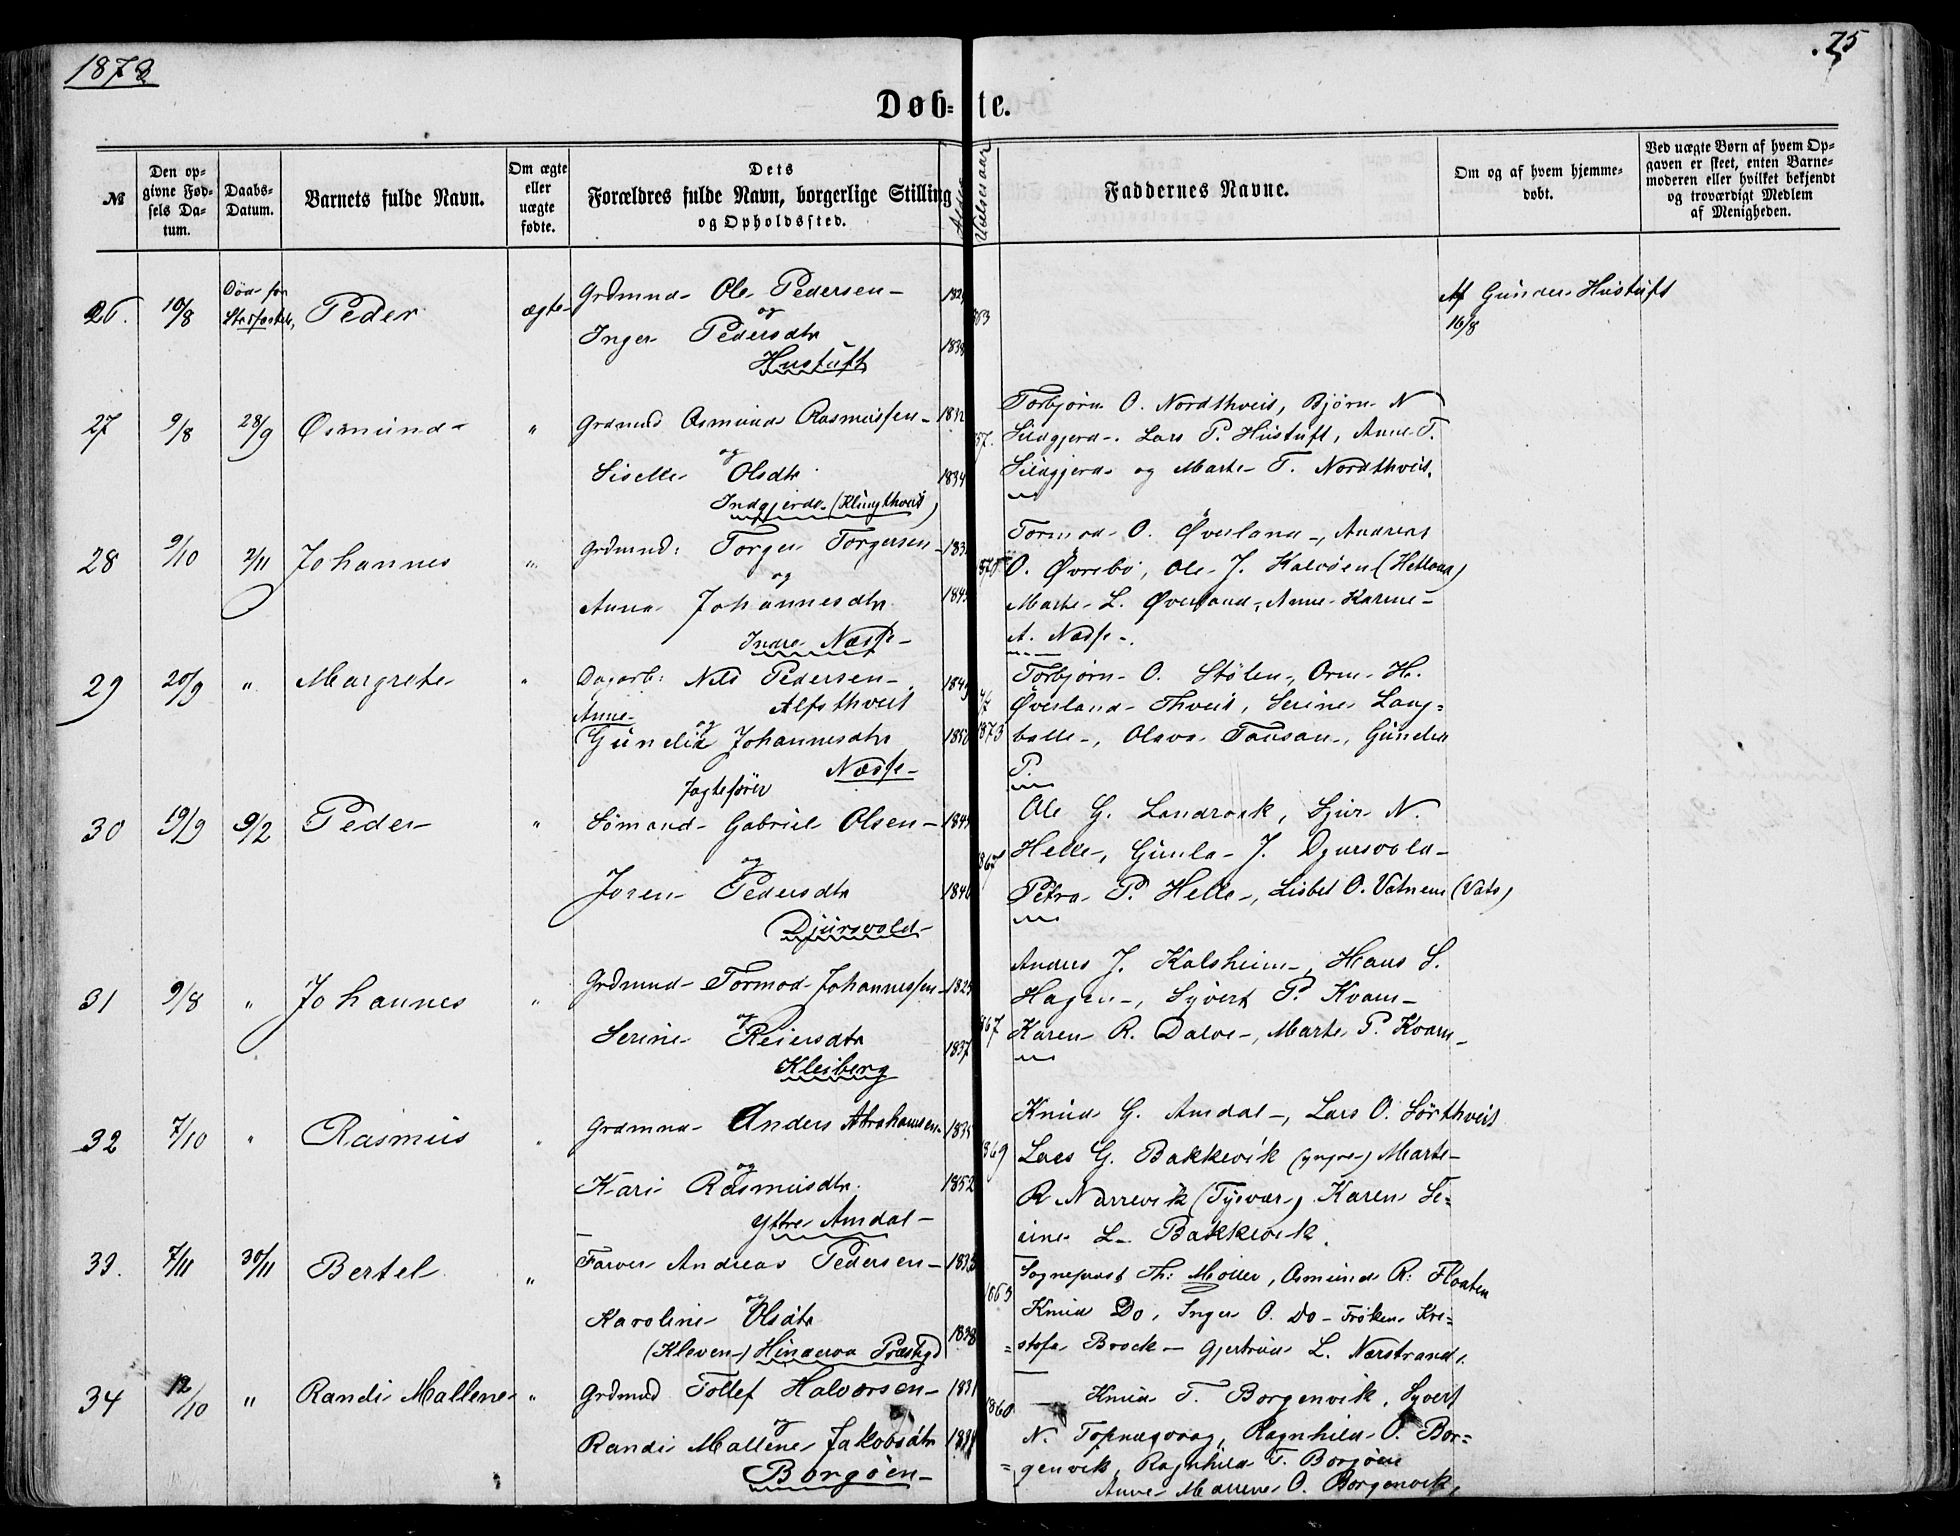 1873
.75
Døb-te.
№
Den opgivne Fødsels Datum.
Daabs-Datum.
Barnets fulde Navn.
Om ægte eller uægte fødte.
Dets Forældres fulde Navn, borgerlige Stilling og Opholdssted.
Vielsesaar
Faddernes Navne.
Om og af hvem hjemmedøbt.
Ved uægte Børn af hvem Opgaven er skeet, enten Barnemoderen eller hvilket bekjendt og troværdigt Medlem af Menigheden.
26. 10/8 Død før Peder ægte Grdmnd Ole Pedersen
og
Inger Pedersdtr
Hustuft
Af Gunder Hustuft
16/8
27 9/8 28/9 Osmund " Grdmnd Osmund Rasmussen 1832
og
Siselle Olsdtr 1834
Indgjerde (Klungthveit)
57. Torbjørn O. Nordthveit, Bjørn N
Sildgjerd, Lars P. Hustuft, Anne T.
Sildgjerd og Marte T. Nordthveit.
28 9/10 2/11 Johannes " Grdmnd: Torger Torgersen
og
Anna Johannesdtr
Indre Næsse
Tormod O. Øverland, Andreas
O. Øvrebø, Ole J. Kalvøen (Hetland)
Marte L. Øverland, Anne Karine
A. Næsse.
29 20/9 " Margrete " Dagarb: Nils Pedersen
Alfsthveit
Anne og
Gundla Johannesdtr
Næsse
1873 Torbjørn O. Stølen, Orm H.
Øverland Thveit, Serine Lang-
balle, Olava Tausan, Gunder
P.
30 19/9 9/2 Peder " Jagtefører
Sømand Gabriel Olsen
og
Joren Pedersdtr
Djursvold
1867 Ole G. Landraak, Sjur N.
Helle, Gunla J. Djursvold
Petra P. Helle, Lisbet O. Vatnem (Vats)
31 9/8 " Johannes " Grdmnd Tormod Johannessen
og
Serine Reiersdtr 1837
Kleiberg
1867 Anders J. Kalsheim, Hans S.
Hagen, Syvert P. Kvam
Karen R. Dalve, Marte P. Kvam
32 7/10 " Rasmus " Grdmnd Anders Abrahamsen 1835
og
Kari Rasmusdtr. 1852
Yttre Amdal
1869 Knud G. Amdal, Lars O. Sørthveit
Lars G. Bakkevik (yngre) Marte
R Narrevik (Tysvær) Karen Se-
rine L. Bakkevik.
33. 7/11 30/11 Bertel " Farver Andreas Pedersen 1835
og
Karoline Olsdtr 1838
(Kleven) Hinderaa Præstgd
1863 Sogneprest Th: Møller, Osmund R. Floaten
Knud Do, Inger O. Do Frøken Kri-
stofa Brock Gjertrud L. Nærstrand.
34 12/10 " Randi Mallene " Grdmnd Tollef Halvorsen 1831
og
Randi Mallene Jakobsdtr
Borgøen
1860 Knud T. Borgenvik, Syvert
N. Topnæsvaag, Ragnhild O. Bor-
genvik, Ragnhild T. Borgøen
Anne Mallene O. Borgenvik.